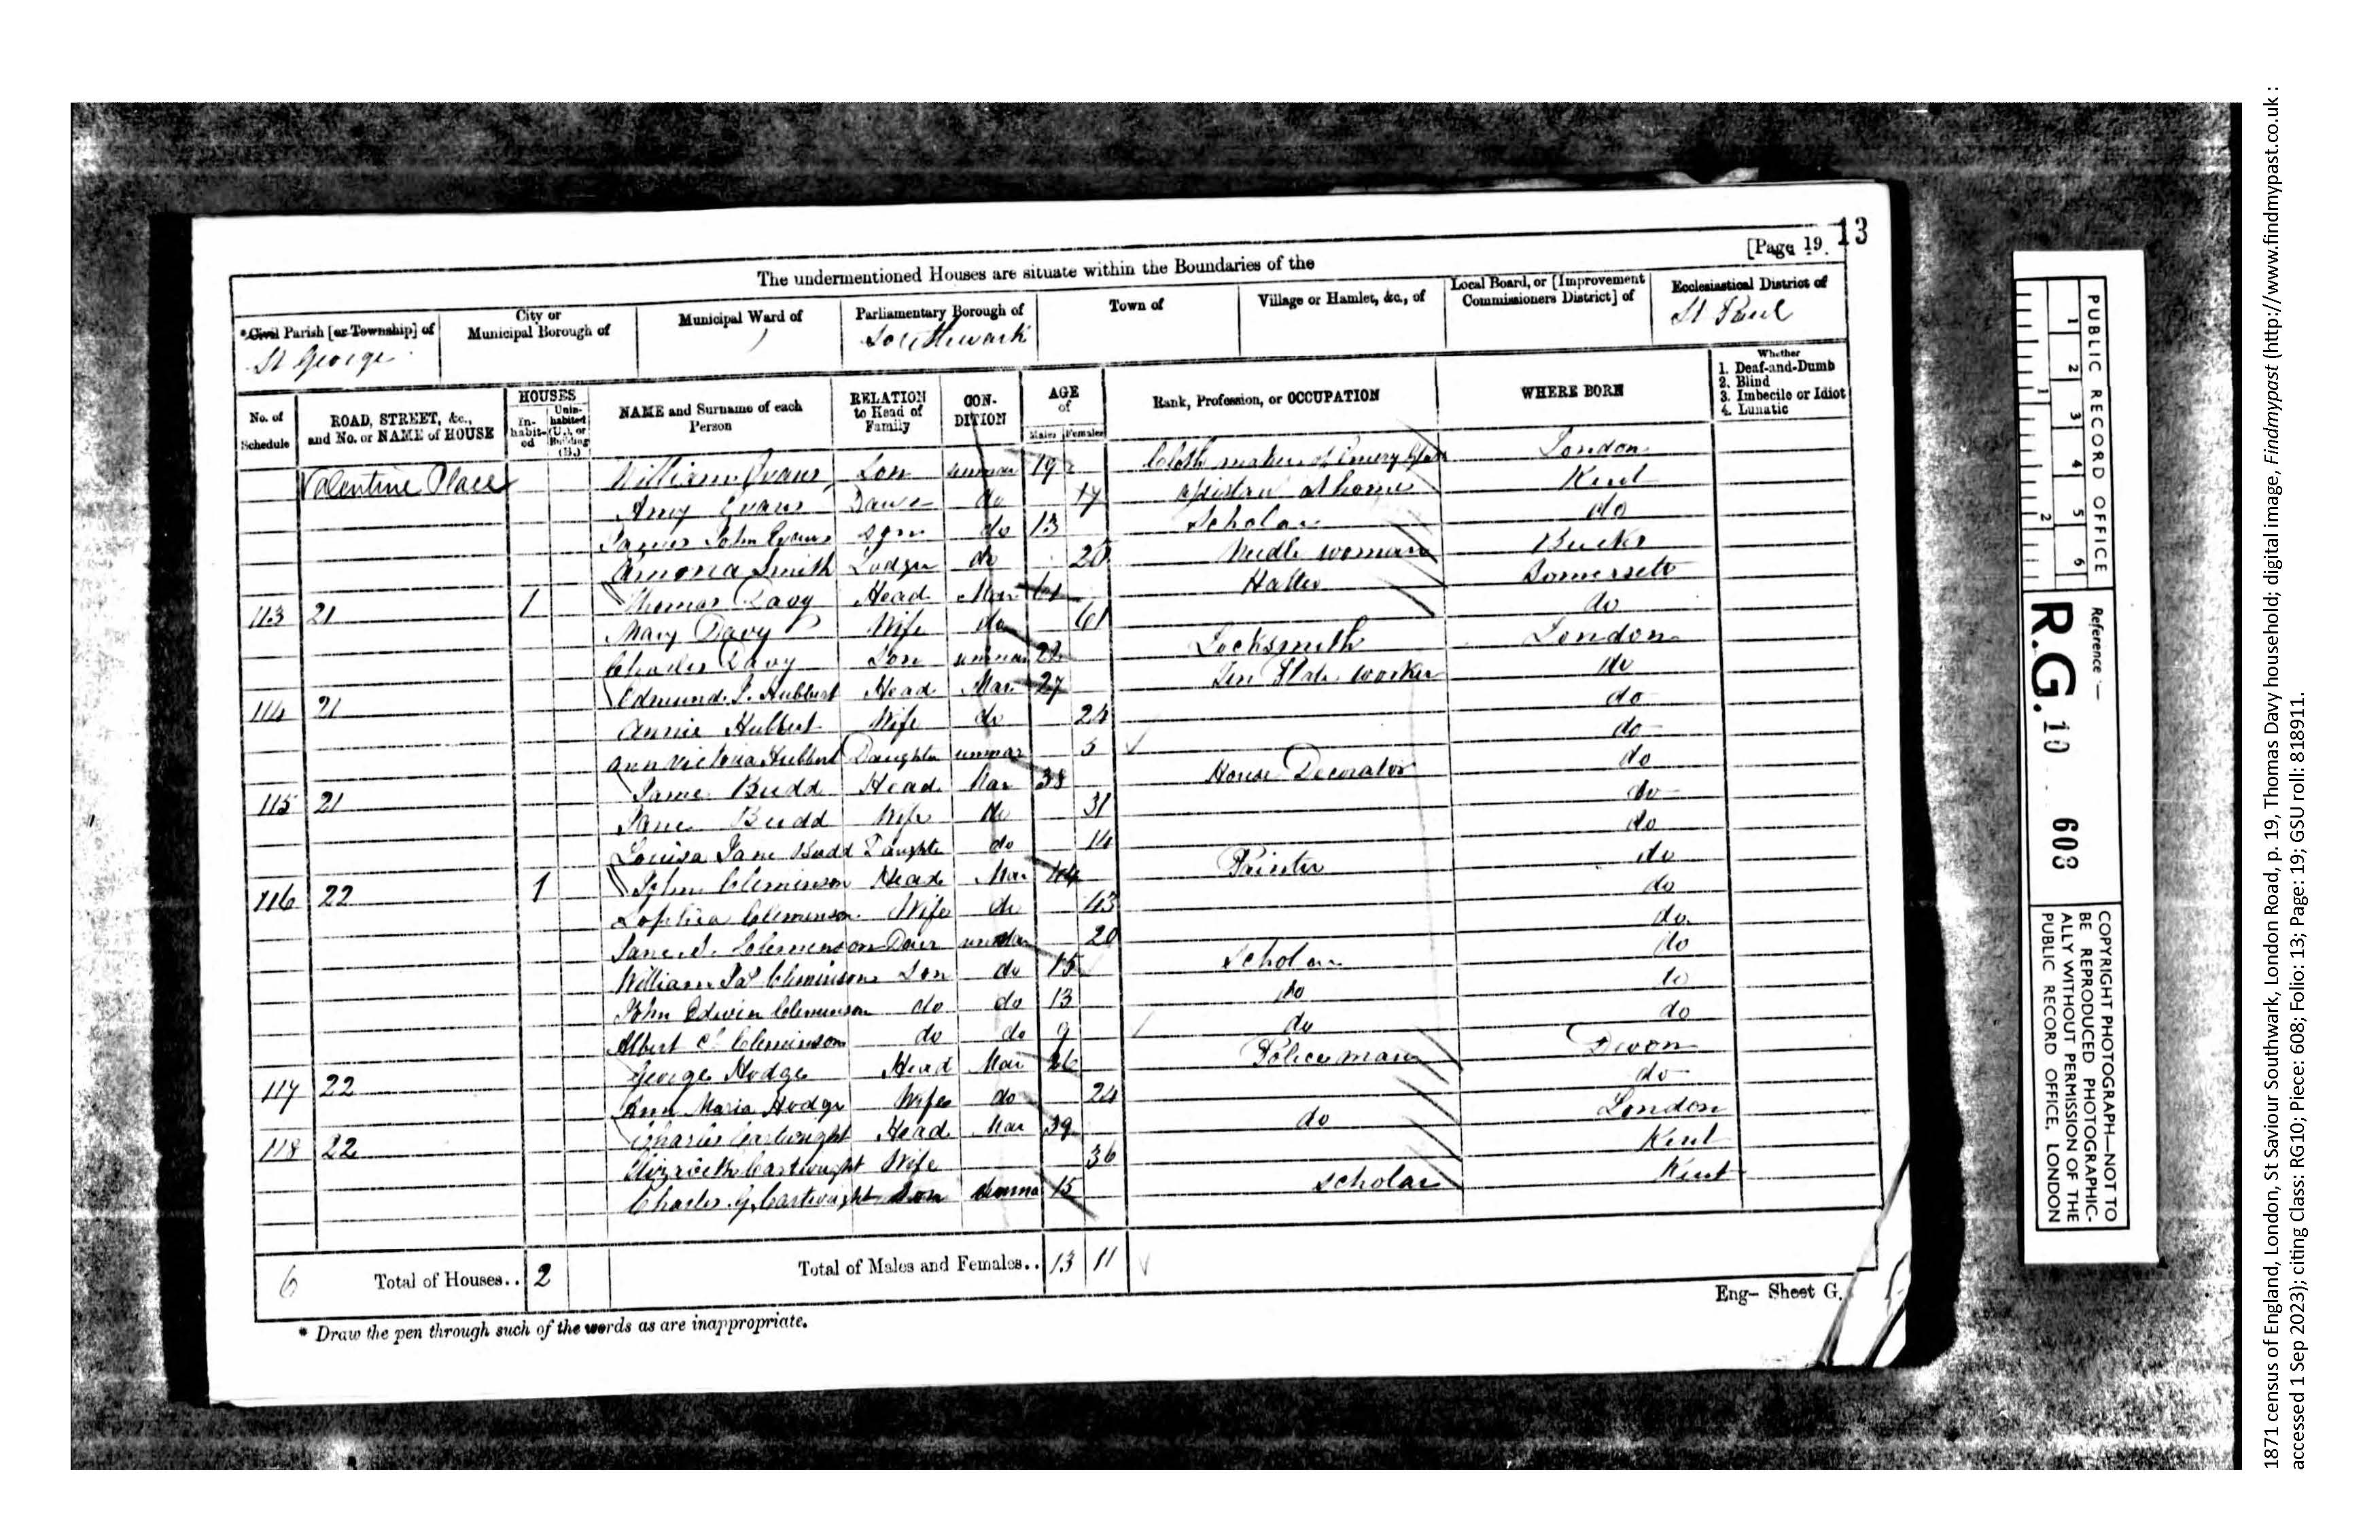 [Page 19. 13
The undermentioned Houses are situate within the Boundaries of the
*Civil Parish [or Township] of
St George
City or Municipal Borough of
Municipal Ward of
Parliamentary Borough of
Southwark
Town of
Village or Hamlet, &c., of
Local Board, or [Improvement Commissioners District] of
Ecclesiastical District of
St Paul
No. of Schedule
ROAD, STREET, &c., and No. or NAME of HOUSE
HOUSES
In-habit-ed
Unin-habited (U.), or Building (B.)
NAME and Surname of each Person
RELATION to Head of Family
CON-DITION
AGE of
Males Females
Rank, Profession, or OCCUPATION
WHERE BORN
Whether
1. Deaf-and-Dumb
2. Blind
3. Imbecile or Idiot
4. Lunatic
Valentine Place William Evans Son unmar 19 Cloth maker of Emery London
Amy Evans do 17 at home Kent
James John Evans son do 13 Scholar do
Smith Lodger do Needle woman Bucks
113 21 1 Thomas Davy Head Mar Hatter Somerset
Mary Davy Wife do 61 do
Charles Davy Son unmar 22 Locksmith London
114 21 Edmund J. Hubbert Head Mar 27 Tin Plate worker do
Annie Hubbert Wife do 24 do
Ann Victoria Hubbert Daughter unmar 3 do
115 21 Jame Budd Head Mar 38 House Decorator do
Jane Budd Wife do 31 do
Louisa Jane Budd Daughter do 14 do
116 22 1 John Cleminson Head Mar 44 do
Cleminson Wife do 43 do
Jane Cleminson Daur 20 do
William Jas Cleminson Son do 15 Scholar do
John Edwin Cleminson do do 13 do do
Albert C. Cleminson do do 9 do do
117 22 George Hodge Head Mar 26 Policeman Devon
Ann Maria Hodge Wife do 24 do
118 22 Charles Cartwright Head Mar 39 do London
Elizabeth Cartwright Wife 36 Kent
Charles G. Cartwright Son 15 scholar Kent
6 Total of Houses.. 2 Total of Males and Females.. 13 11
Eng– Sheet G.
* Draw the pen through such of the words as are inappropriate.
PUBLIC RECORD OFFICE
1 2 3 4 5 6
1 2
Reference :—
R.G. 10 608
COPYRIGHT PHOTOGRAPH—NOT TO BE REPRODUCED PHOTOGRAPHIC-ALLY WITHOUT PERMISSION OF THE PUBLIC RECORD OFFICE, LONDON
1871 census of England, London, St Saviour Southwark, London Road, p. 19, Thomas Davy household; digital image, Findmypast (http://www.findmypast.co.uk :
accessed 1 Sep 2023); citing Class: RG10; Piece: 608; Folio: 13; Page: 19; GSU roll: 818911.